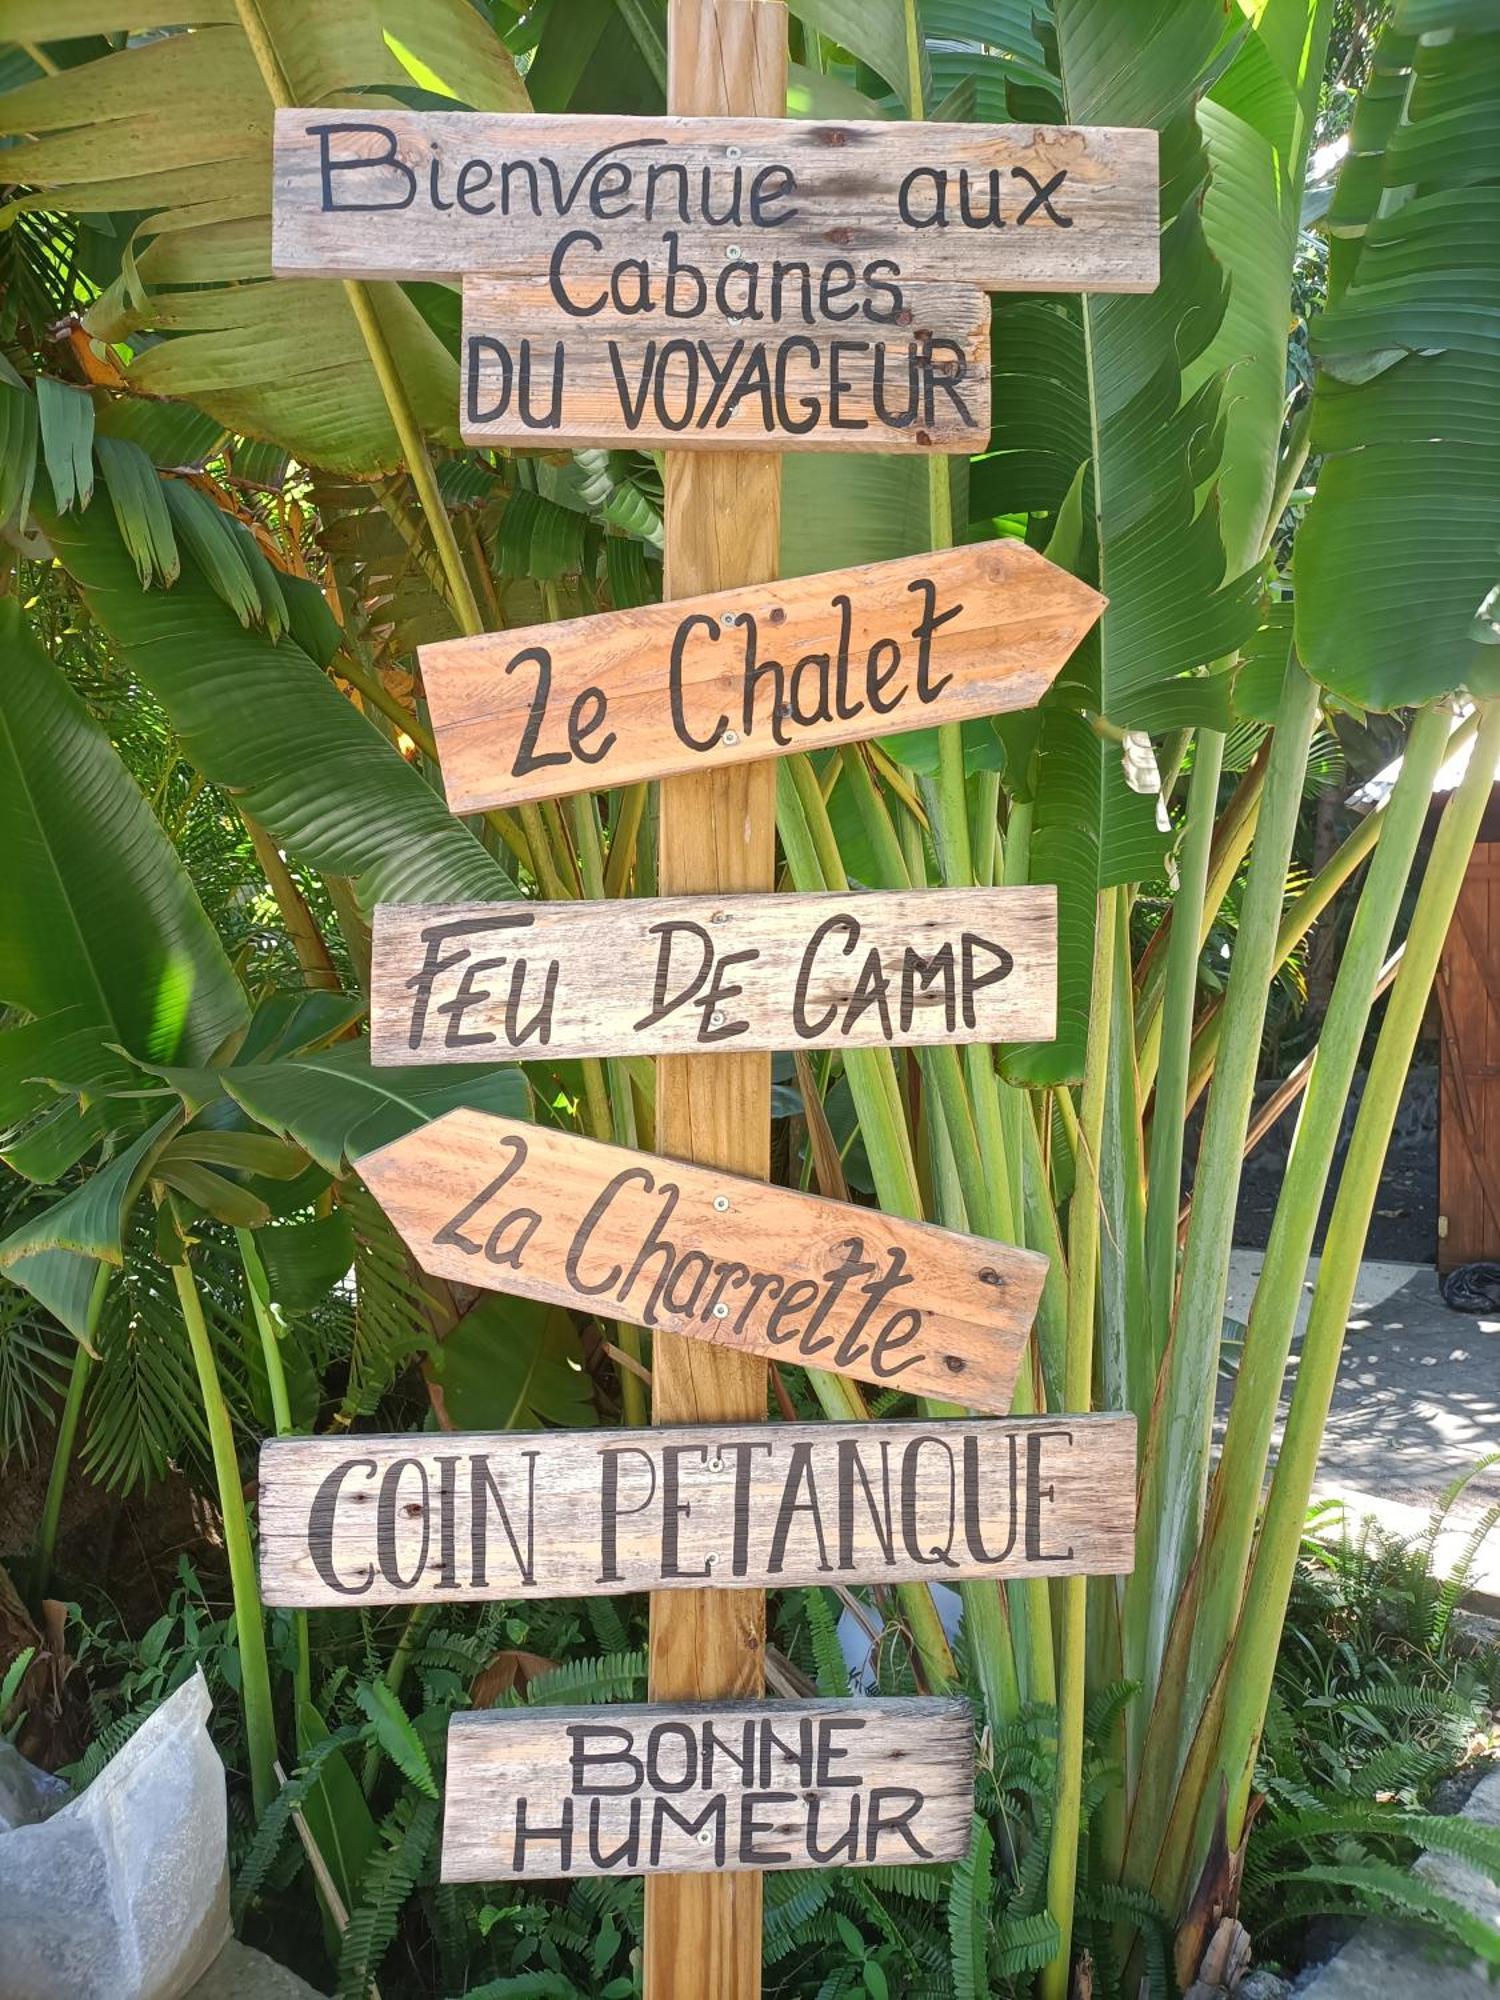 Bienvenue aux
Cabanes
DU VOYAGEUR
Le Chalet
FEU DE CAMP
La Charrette
COIN PETANQUE
BONNE
HUMEUR